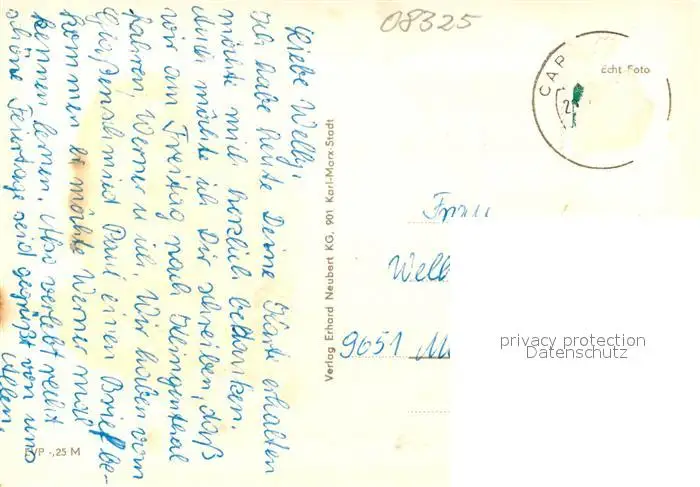 Liebe Welly,
Ich habe heute Deine Karte erhalten
möchte mich herzlich bedanken.
Auch möchte ich Dir schreiben, daß
wir am Freitag nach Klingenthal
fahren, Werner u. ich. Wir haben vom
Großenschmied Paul einen Brief be-
kommen er möchte Werner mal
kennen lernen. Also verlebt recht
schöne Feiertage seid gegrüßt von uns
Allen.
EVP -,25 M
Verlag Erhard Neubert KG, 901 Karl-Marx-Stadt
08325
CAP
Echt Foto
Frau
Well
9651 M
privacy protection
Datenschutz